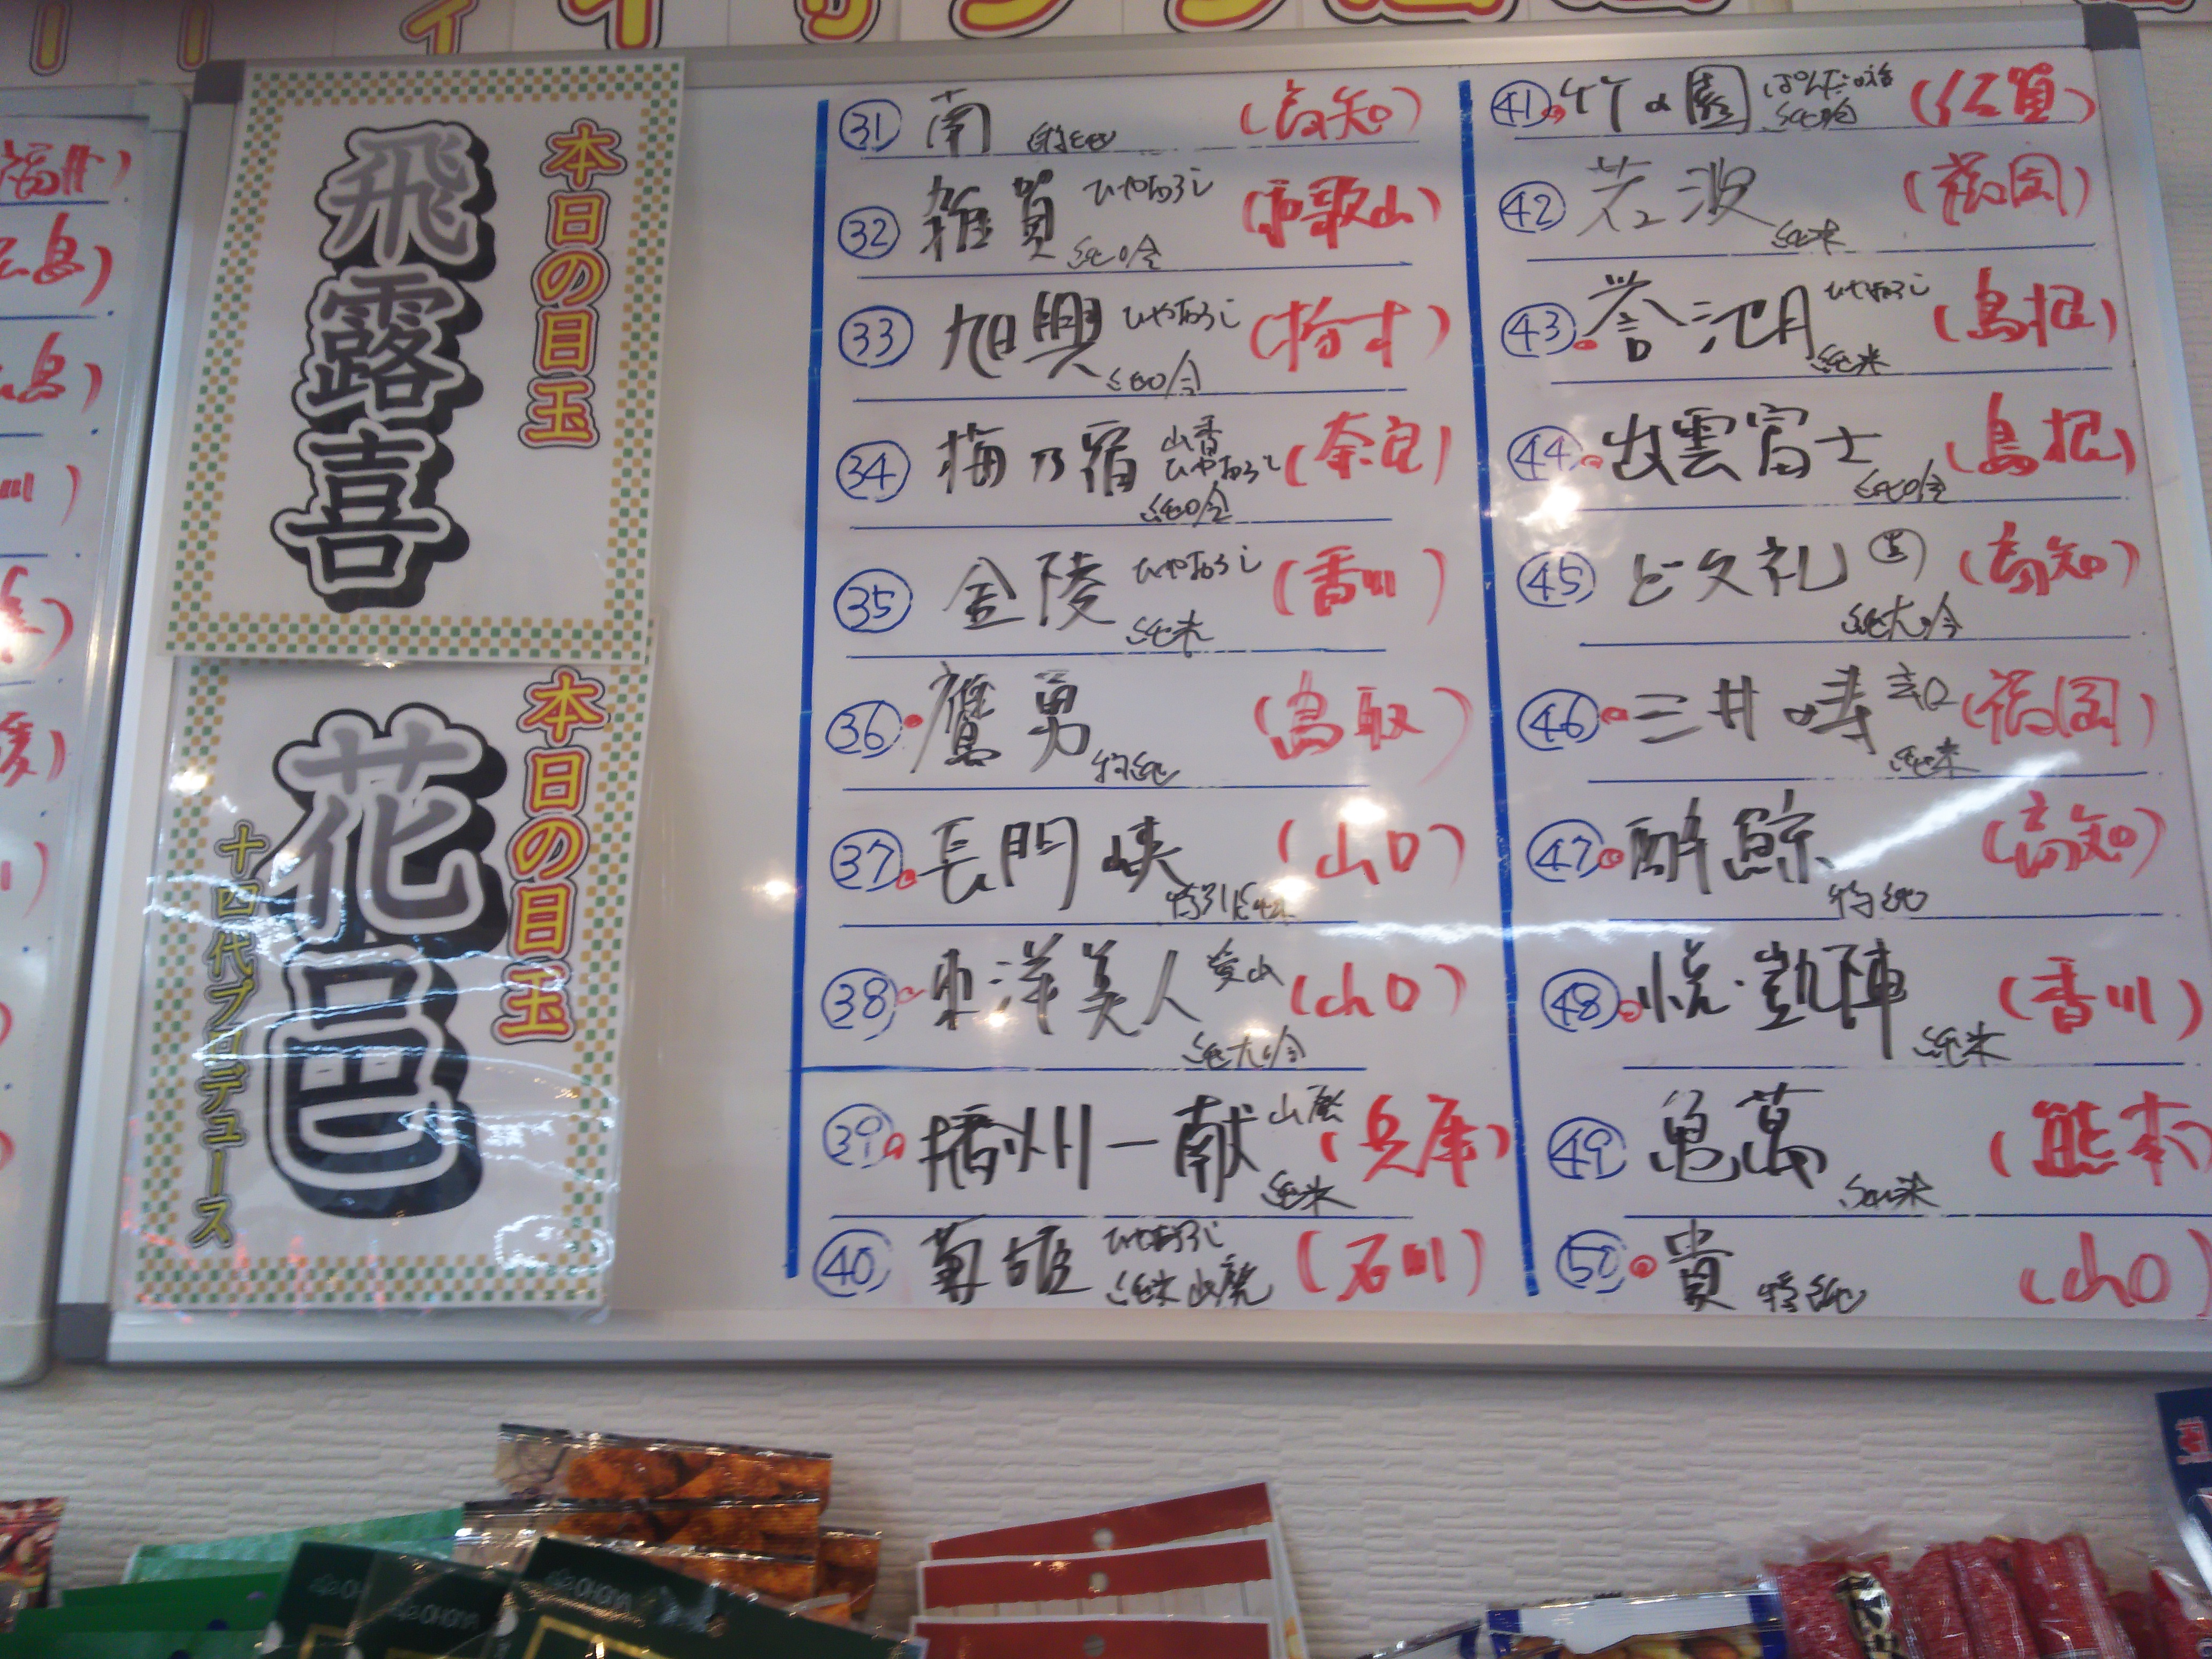 本日の目玉
飛露喜
本日の目玉
花邑
十四代プロデュース
㉛ 南 特純 (高知)
㉜ 雑賀 ひやおろし 純吟 (和歌山)
㉝ 旭興 ひやおろし 純吟 (栃木)
㉞ 梅乃宿 山香 ひやおろし 純吟 (奈良)
㉟ 金陵 ひやおろし 純米 (香川)
㊱ 鷹勇 特純 (鳥取)
㊲ 長門峡 (山口)
㊳ 東洋美人 純大吟 (山口)
㊴ 播州一献 山廃 純米 (兵庫)
㊵ 菊姫 ひやおろし 純米 山廃 (石川)
㊶ 竹の園 純吟 (佐賀)
㊷ 若波 純米 (福岡)
㊸ 誉池月 ひやおろし 純米 (島根)
㊹ 出雲富士 純吟 (島根)
㊺ ど久礼 純大吟 (高知)
㊻ 三井の寿 純米 (福岡)
㊼ 酔鯨 特純 (高知)
㊽ 悦・凱陣 純米 (香川)
㊾ 亀萬 純米 (熊本)
㊿ 貴 特純 (山口)